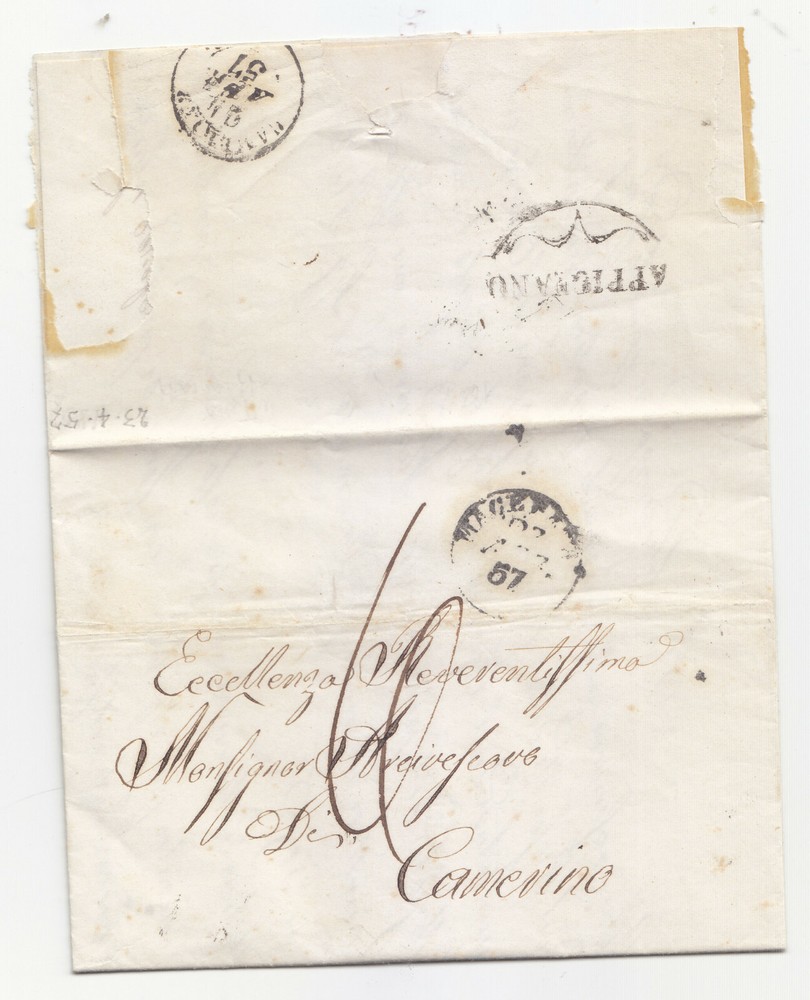 CAMERINO
APR
57
APPIGNANO
23-4-57
57
6
Eccellenza Reverentissima
Monsignor Arcivescovo
Di
Camerino